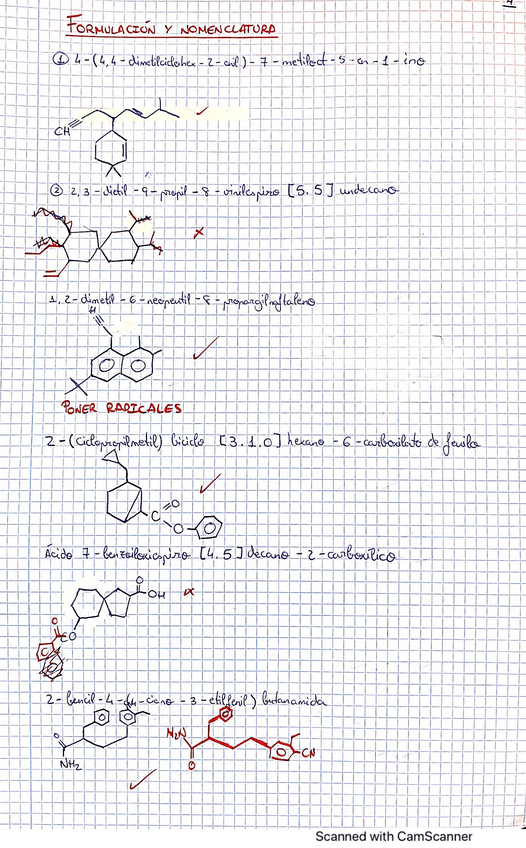 4
FORMULACIÓN Y NOMENCLATURA
① 4-(4,4-dimetilciclohex-2-enil)-7-metiloct-5-en-1-ino
CH
② 2,3-dietil-9-propil-8-vinilespiro [5.5] undecano
1,2-dimetil-6-neopentil-8-propargilnaftaleno
H
PONER RADICALES
2-(ciclopropilmetil) biciclo [3.1.0] hexano-6-carboxilato de fenilo
C O
O
Ácido 7-benzoiloxiespiro [4.5] decano-2-carboxílico
O
OH
O
CO
2-bencil-4-(4-ciano-3-etilfenil) butanamida
O
NH2
H2N
O
CN
Scanned with CamScanner